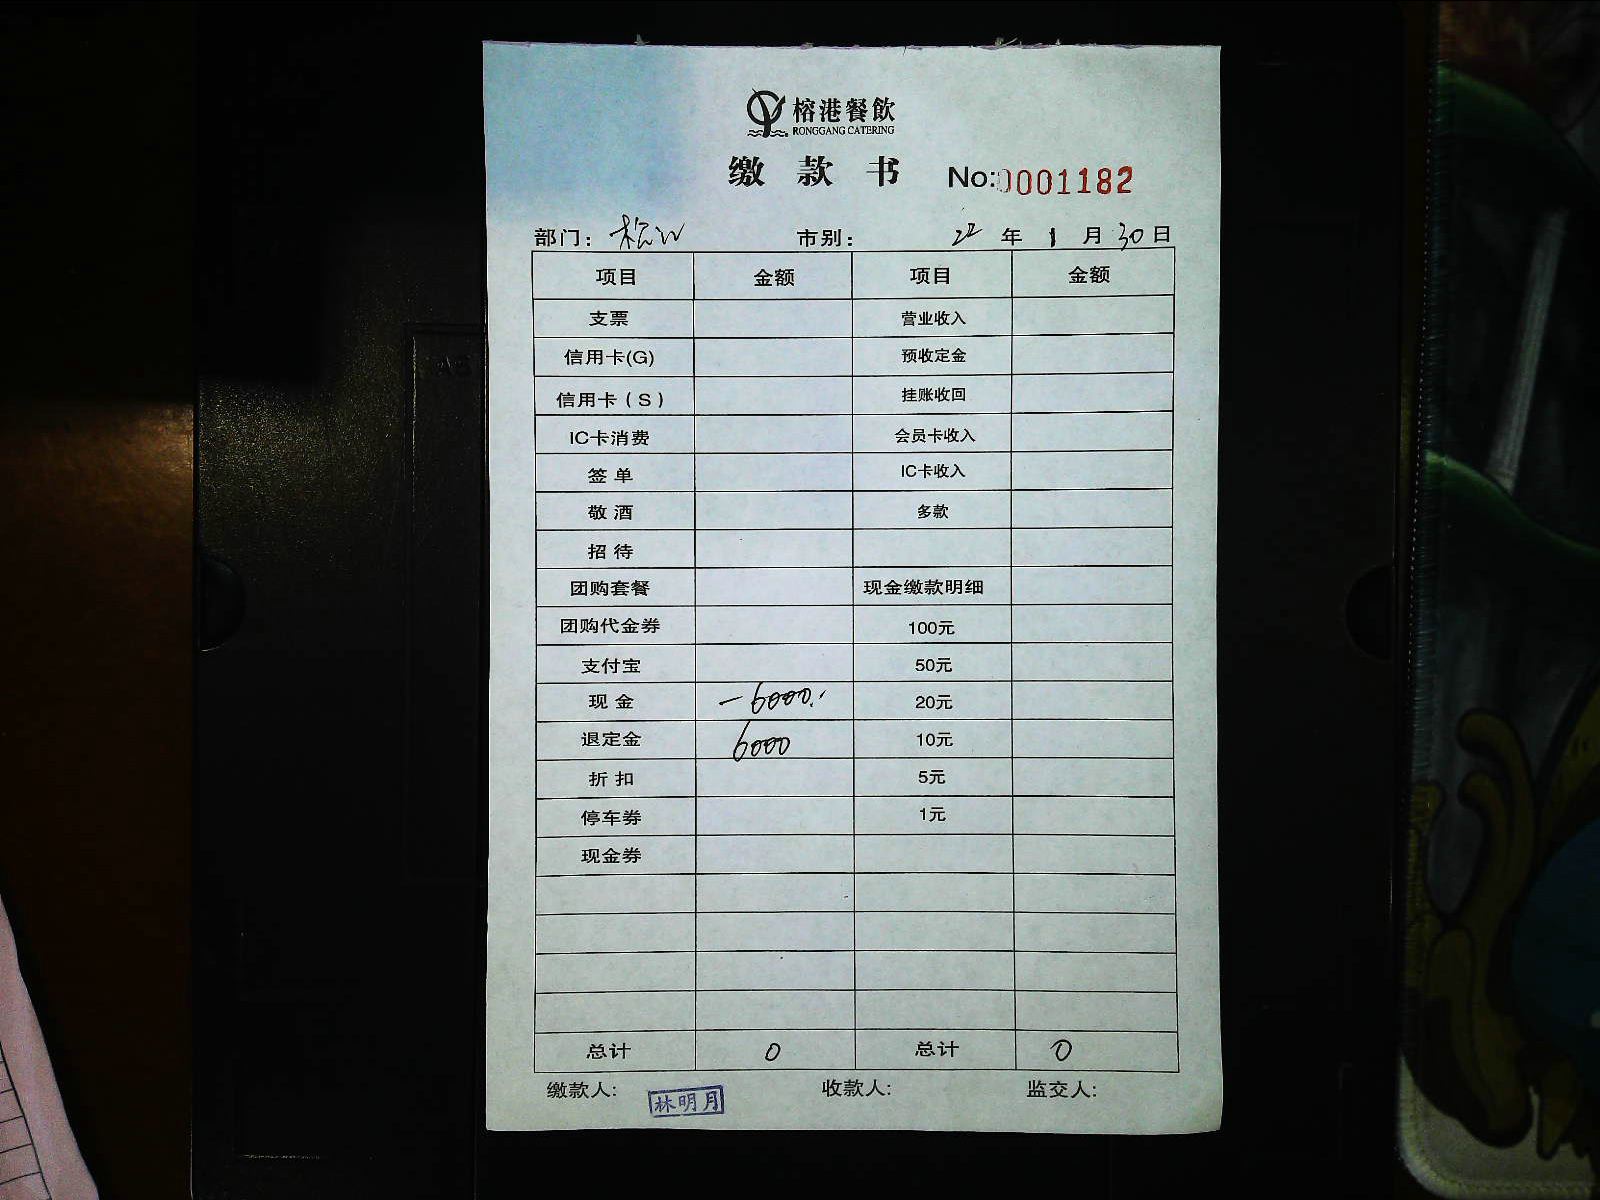 榕港餐飲
RONGGANG CATERING
缴 款 书 No:0001182
部门: 松江 市别: 22 年 1 月 30 日
项目 金额 项目 金额
支票 营业收入
信用卡(G) 预收定金
信用卡(S) 挂账收回
IC卡消费 会员卡收入
签单 IC卡收入
敬酒 多款
招待
团购套餐 现金缴款明细
团购代金券 100元
支付宝 50元
现金 -6000. 20元
退定金 6000 10元
折扣 5元
停车券 1元
现金券
总计 0 总计 0
缴款人: 林明月 收款人: 监交人: